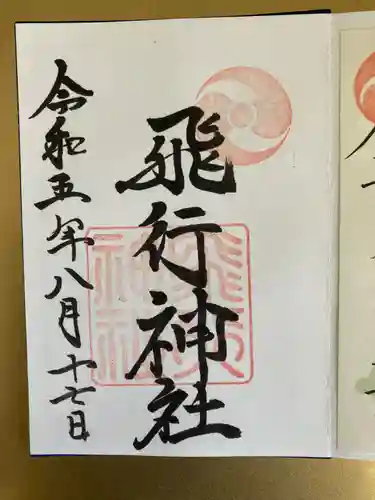 飛行神社
令和五年八月十七日
飛行
神社